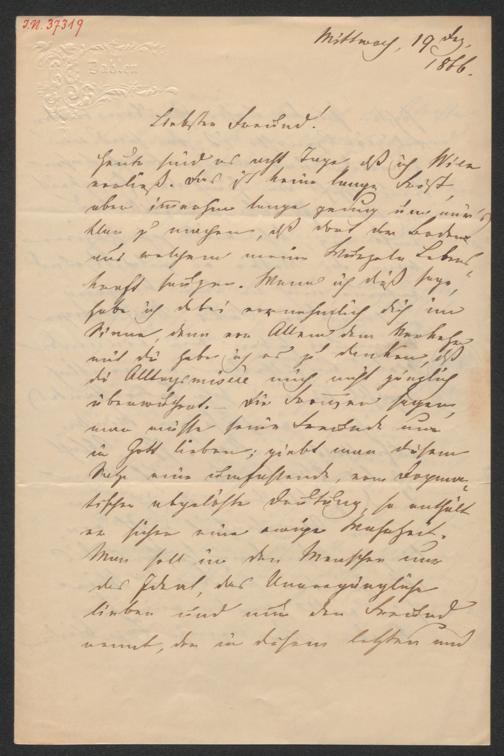 J.N. 37319
Baden
Mittwoch, 19 Dez.
1866.
Liebster Freund!
Heute sind es acht Tage, daß ich Wien
verließ. Das ist keine lange Frist,
aber immerhin lange genug um mir's
klar zu machen, daß dort der Boden
aus welchem meine Wurzeln Lebens-
kraft saugen. Wenn ich dieß sage,
habe ich dabei vornehmlich dich im
Sinne, denn vor Allem dem Verkehr
mit dir habe ich es zu danken, daß
die Alltagsmisère mich nicht gänzlich
überwuchert. – Die Frommen sagen,
man müsse seine Freunde nur
in Gott lieben; giebt man diesem
Satze eine umfassende, vom Dogma-
tischen abgelöste Deutung, so enthält
er sicher eine ewige Wahrheit.
Man soll in den Menschen nur
das Ideal, das Unvergängliche
lieben und nur den Freund
nennt, der in diesem letzten und